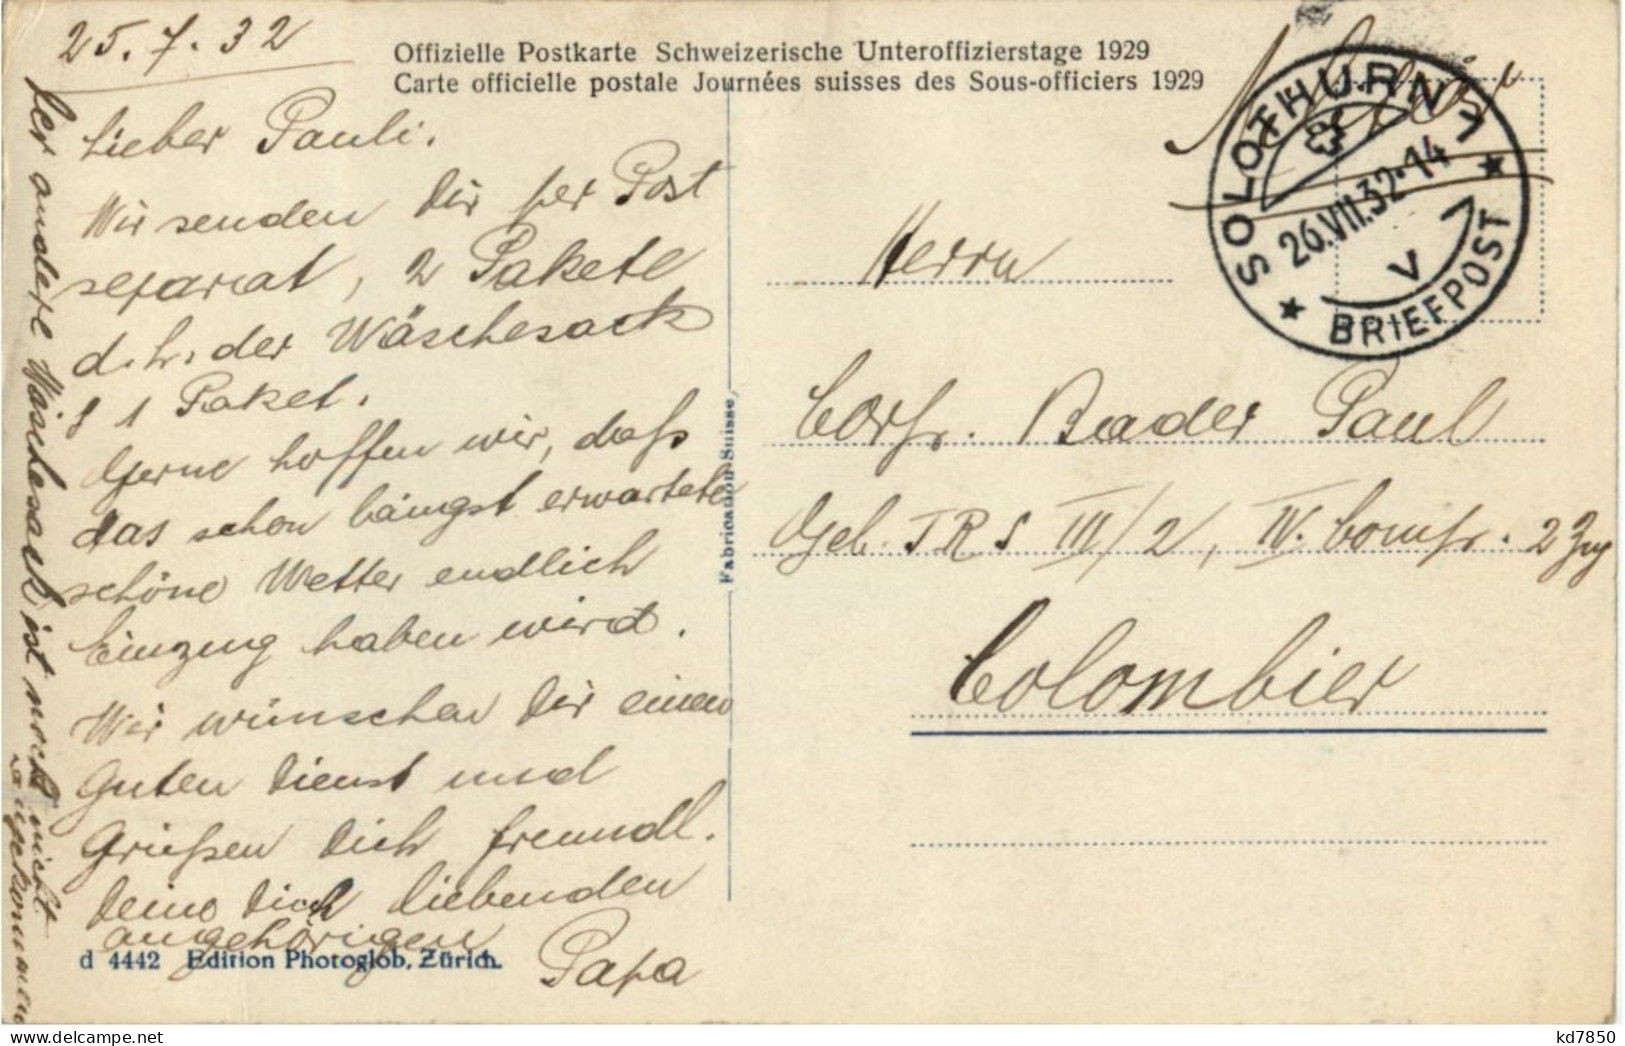 25.7.32
Offizielle Postkarte Schweizerische Unteroffizierstage 1929
Carte officielle postale Journées suisses des Sous-officiers 1929
Lieber Pauli.
Wir senden Dir per Post
separat, 2 Pakete
d.h. der Wäschesack
& 1 Paket.
Gerne hoffen wir, daß
das schon längst erwartete
schöne Wetter endlich
Einzug haben wird.
Wir wünschen Dir einen
Guten Dienst und
Grüßen Dich freundl.
Deine Dich liebenden
angehörigen
Papa
Der andere Wäschesack ist noch nicht
angekommen
d 4442 Edition Photoglob, Zürich.
Fabrication Suisse,
SOLOTHURN 1
26.VII.32-14
V
BRIEFPOST
Herrn
Corp. Bader Paul
Geb. I R S III/2, IV. Comp. 2 Zug
Colombier
kd7850